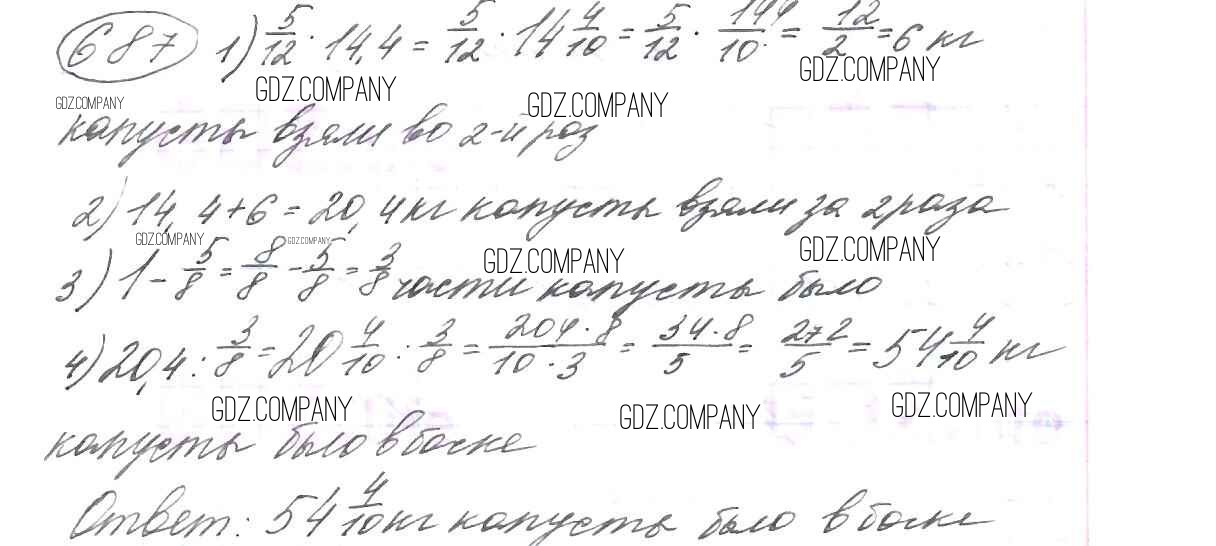 687 1) 5/12 · 14,4 = 5/12 · 14 4/10 = 5/12 · 144/10 = 12/2 = 6 кг
GDZ.COMPANY GDZ.COMPANY GDZ.COMPANY GDZ.COMPANY
капусты взяли во 2-й раз
2) 14,4+6 = 20,4 кг капусты взяли за 2 раза
GDZ.COMPANY GDZ.COMPANY GDZ.COMPANY GDZ.COMPANY
3) 1 - 5/8 = 8/8 - 5/8 = 3/8 части капусты было
4) 20,4 : 3/8 = 20 4/10 : 3/8 = 204·8/10·3 = 34·8/5 = 272/5 = 54 4/10 кг
GDZ.COMPANY GDZ.COMPANY GDZ.COMPANY
капусты было в бочке
Ответ: 54 4/10 кг капусты было в бочке